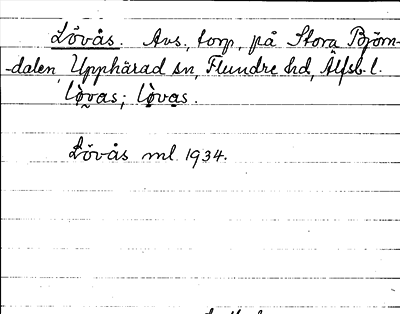 Lövås. Avs., torp, på Stora Björn-
-dalen, Upphärad sn, Flundre hd, Älfsb. l.
lò̰vas; lò̰va̰s.
Lövås ml 1934.